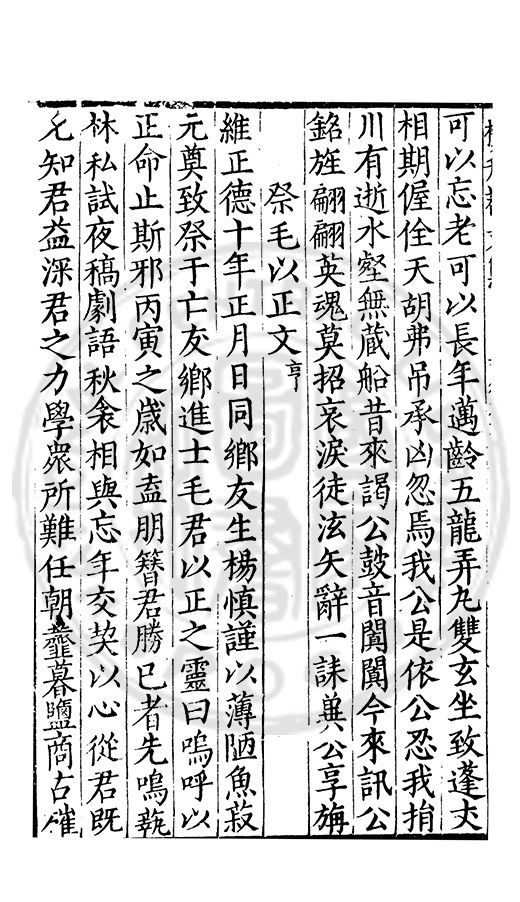 可以忘老可以長年邁齡五龍弄九雙玄坐致蓬丈
相期偓佺天胡弗吊承凶忽焉我公是依公忍我捐
川有逝水壑無蔵船昔來謁公鼓音闐闐今來訊公
銘旌翩翩英魂莫招哀淚徒泫矢辭一誄兾公享旃
祭毛以正文亨
維正德十年正月日同鄉友生楊慎謹以薄陋魚菽
元奠致祭于亡友鄉進士毛君以正之靈曰嗚呼以
正命止斯邪丙寅之歳如盍朋簪君勝已者先嗚蓺
林私試夜稿劇語秋衾相與忘年交契以心從君既
乆知君益深君之力學衆所難任朝虀暮鹽商古